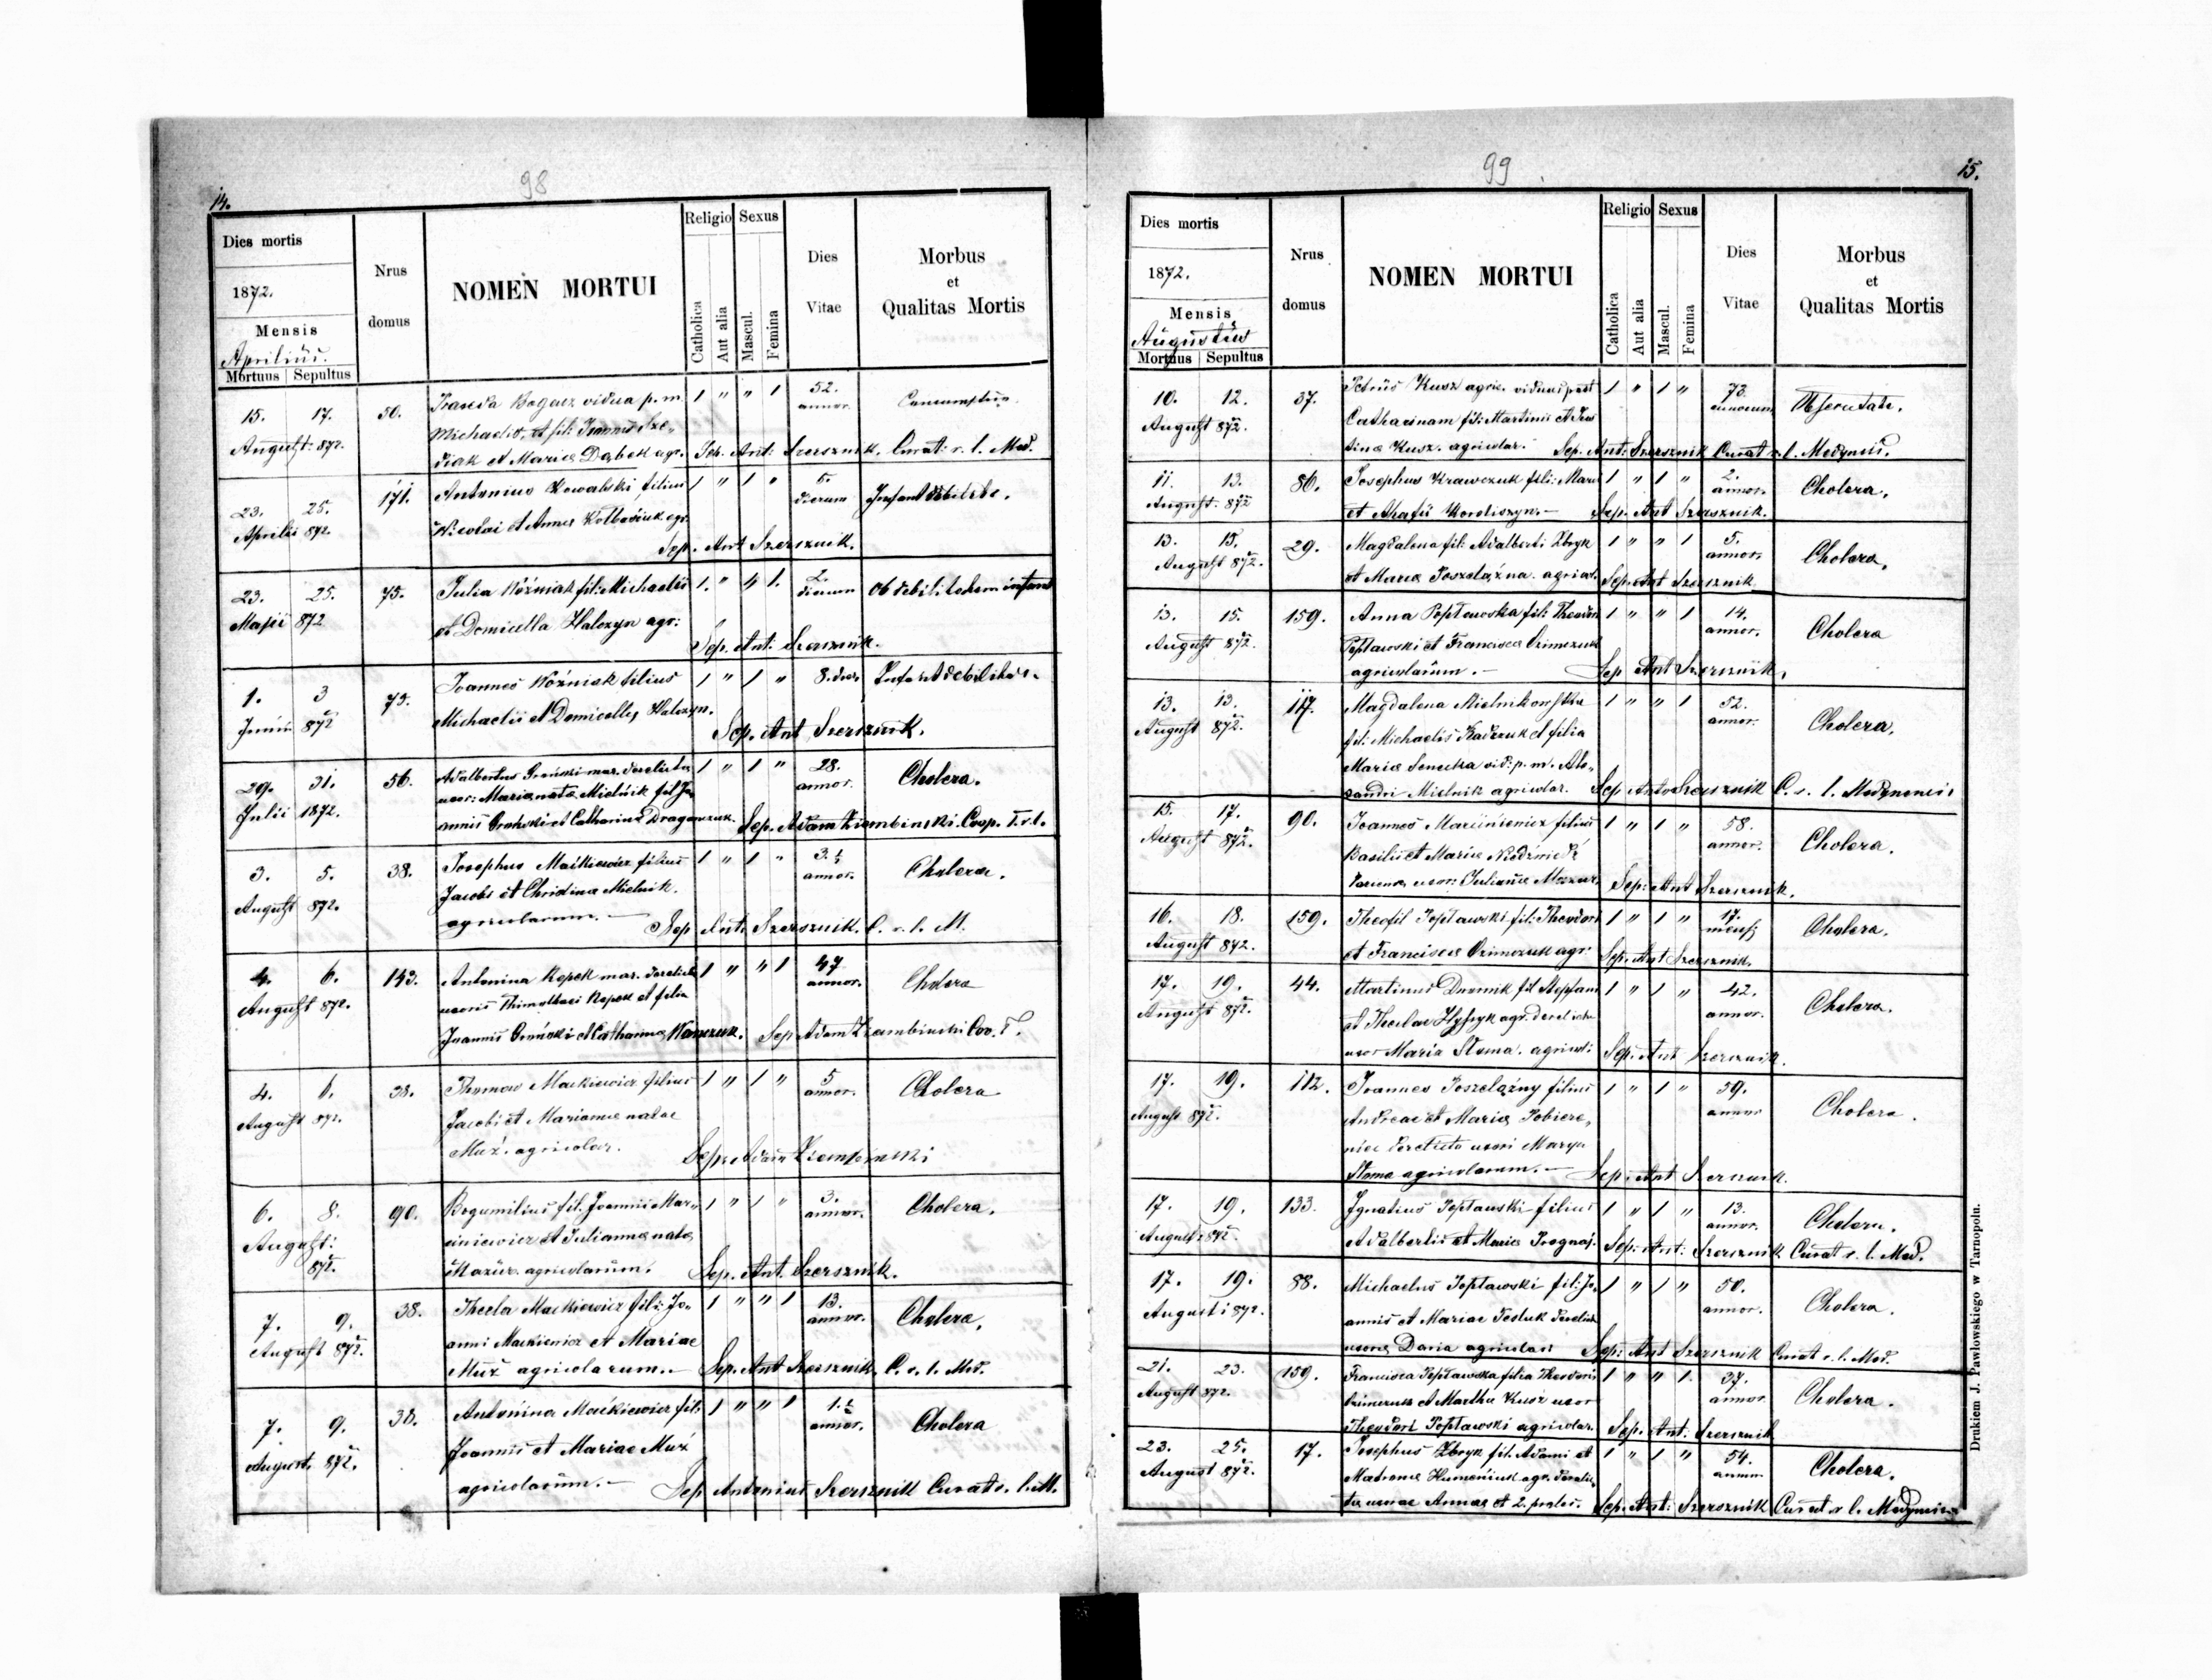 98
14.
Dies mortis
1872.
Mensis
Aprilius.
Mortuus Sepultus
Nrus
domus
NOMEN MORTUI
Religio Sexus
Catholica
Aut alia
Mascul.
Femina
Dies
Vitae
Morbus
et
Qualitas Mortis
15. 17. 50. vidua p. m. 1 " " 1 52. annor.
August: 872. Michaelis, et fil: Joannis
et Maria Dąbek agr. Sep. Ant: Szersznik. Curat: r. l. Med.
23. 25. 171. Antonius Kowalski filius 1 " 1 " dierum
Aprilis 872. Nicolai et Anna agr.
Sep. Ant Szersznik.
23. 25. 75. Julia Woźniak fil: Michaelis 1. " " 1. 2. dierum ob debilitatem infant
Maji 872 et Domicella Halczyn agr:
Sep. Ant: Szersznik.
1. 3 75. Joannes Woźniak filius 1 " 1 " 8. dier
Junii 872 Michaelis et Domicella Halczyn.
Sep. Ant Szersznik.
29. 31. 56. Adalbertus mar. derelicta 1 " 1 " 28. annor. Cholera.
Julii 1872. uxor: Maria nata Mielnik fil Jo-
annis et Catharina Sep. Adam Ziembinski. Coop. T. r. l.
3. 5. 38. Josephus Maćkiewicz filius 1 " 1 " 3.½ annor. Cholera.
August 872. Jacobi et Christina Mielnik.
agricolarum. — Sep Ant. Szersznik. C. r. l. M.
4. 6. 143. Antonina Kopek mar. derelicta 1 " " 1 47 annor. Cholera
August 872. uxoris Kopek et filia
Joannis et Catharina Sep Adam Ziembinski Coo. T.
4. 6. 38. Thomas Mackiewicz filius 1 " 1 " 5 annor. Cholera
August 872. Jacobi et Marianna natae
Muż. agricolar. Sep: Adam Ziembinski
6. 8. 90. Bogumilius fil. Joannis Mar- 1 " 1 " 3. annor. Cholera.
August: ciniewicz et Julianna nata
872. Mazur. agricolarum. Sep. Ant. Szersznik.
7. 9. 38. Thecla Mackiewicz fil: Jo- 1 " " 1 13. annor. Cholera.
August 872. anni Mackiewicz et Mariae
Muż agricolarum. — Sep. Ant Szersznik. C. r. l. Med.
7. 9. 38. Antonina Maćkiewicz fil: 1 " " 1 1.½ annor. Cholera
August. 872. Joannis et Mariae Muż
agricolarum. — Sep Antonius Szersznik Curat r. l. M.
99
15.
Dies mortis
1872.
Mensis
Augustus
Mortuus Sepultus
Nrus
domus
NOMEN MORTUI
Religio Sexus
Catholica
Aut alia
Mascul.
Femina
Dies
Vitae
Morbus
et
Qualitas Mortis
10. 12. 37. Petrus Kusz agric. viduus post 1 " 1 " 73. annorum
August 872. Catharinam fil: Martinii et
Kusz. agricolar. Sep. Ant: Szersznik Curat r. l. Medynens.
11. 13. 86. Josephus Krawczuk fil: 1 " 1 " 2. annor. Cholera.
August. 872 et Sep. Ant Szersznik.
13. 15. 29. Magdalena fil: Adalberti Zbryk 1 " " 1 5. annor. Cholera.
August 872. et Maria Poszelażna. agricol. Sep. Ant Szersznik
13. 15. 159. Anna Popławska fil: Theodori 1 " " 1 14. annor. Cholera
August 872. Popławski et Francisca
agricolarum. — Sep Ant Szersznik.
13. 13. 117. Magdalena Mielnikowska 1 " " 1 52. annor. Cholera.
August 872. fil: Michaelis et filia
Maria vid: p. m. Ale-
xandri Mielnik agricolar. Sep Anto Szersznik C. r. l. Medynensis
15. 17. 90. Joannes Marciniewicz filius 1 " 1 " 58. annor. Cholera.
August 872. Basilii et Maria
uxor: Julianna Sep: Ant Szersznik.
16. 18. 159. Theofil Popławski fil: Theodori 1 " 1 " 17. mensj Cholera.
August 872. et Francisca agr: Sep. Ant Szersznik.
17. 19. 44. Martinus fil Stephani 1 " 1 " 42. annor. Cholera.
August 872. et Theclae agr. derelicta
uxor Maria Słoma. agricol: Sep. Ant Szersznik.
17. 19. 112. Joannes Poszelążny filius 1 " 1 " 59. annor Cholera.
August 872. Andreae et Maria
derelicta uxori Marya
Słoma agricolarum. — Sep: Ant Szersznik.
17. 19. 133. Ignatius Popławski filius 1 " 1 " 13. annor. Cholera.
August 872. Adalbertii et Maria Sep: Ant: Szersznik Curat r. l. Med.
17. 19. 88. Michaelus Popławski fil: Jo- 1 " 1 " 50. annor. Cholera.
Augusti 872. annis et Mariae derelicta
uxore Daria agricolar: Sep: Ant Szersznik Curat r. l. Med.
21. 23. 159. Francisca Popławska filia Theodoris 1 " " 1. 37. annor Cholera.
August 872. et Martha Kusz uxor
Theodori Popławski agricolar. Sep. Ant. Szersznik
23. 25. 17. Josephus Zbryk fil. Adami et 1 " 1 " 54. annor. Cholera.
August 872. Matrona Humeniuk agr. derelic-
ta uxore Annae et 2. proles. Sep. Ant: Szersznik Curat r. l. Medynensis
Drukiem J. Pawłowskiego w Tarnopolu.